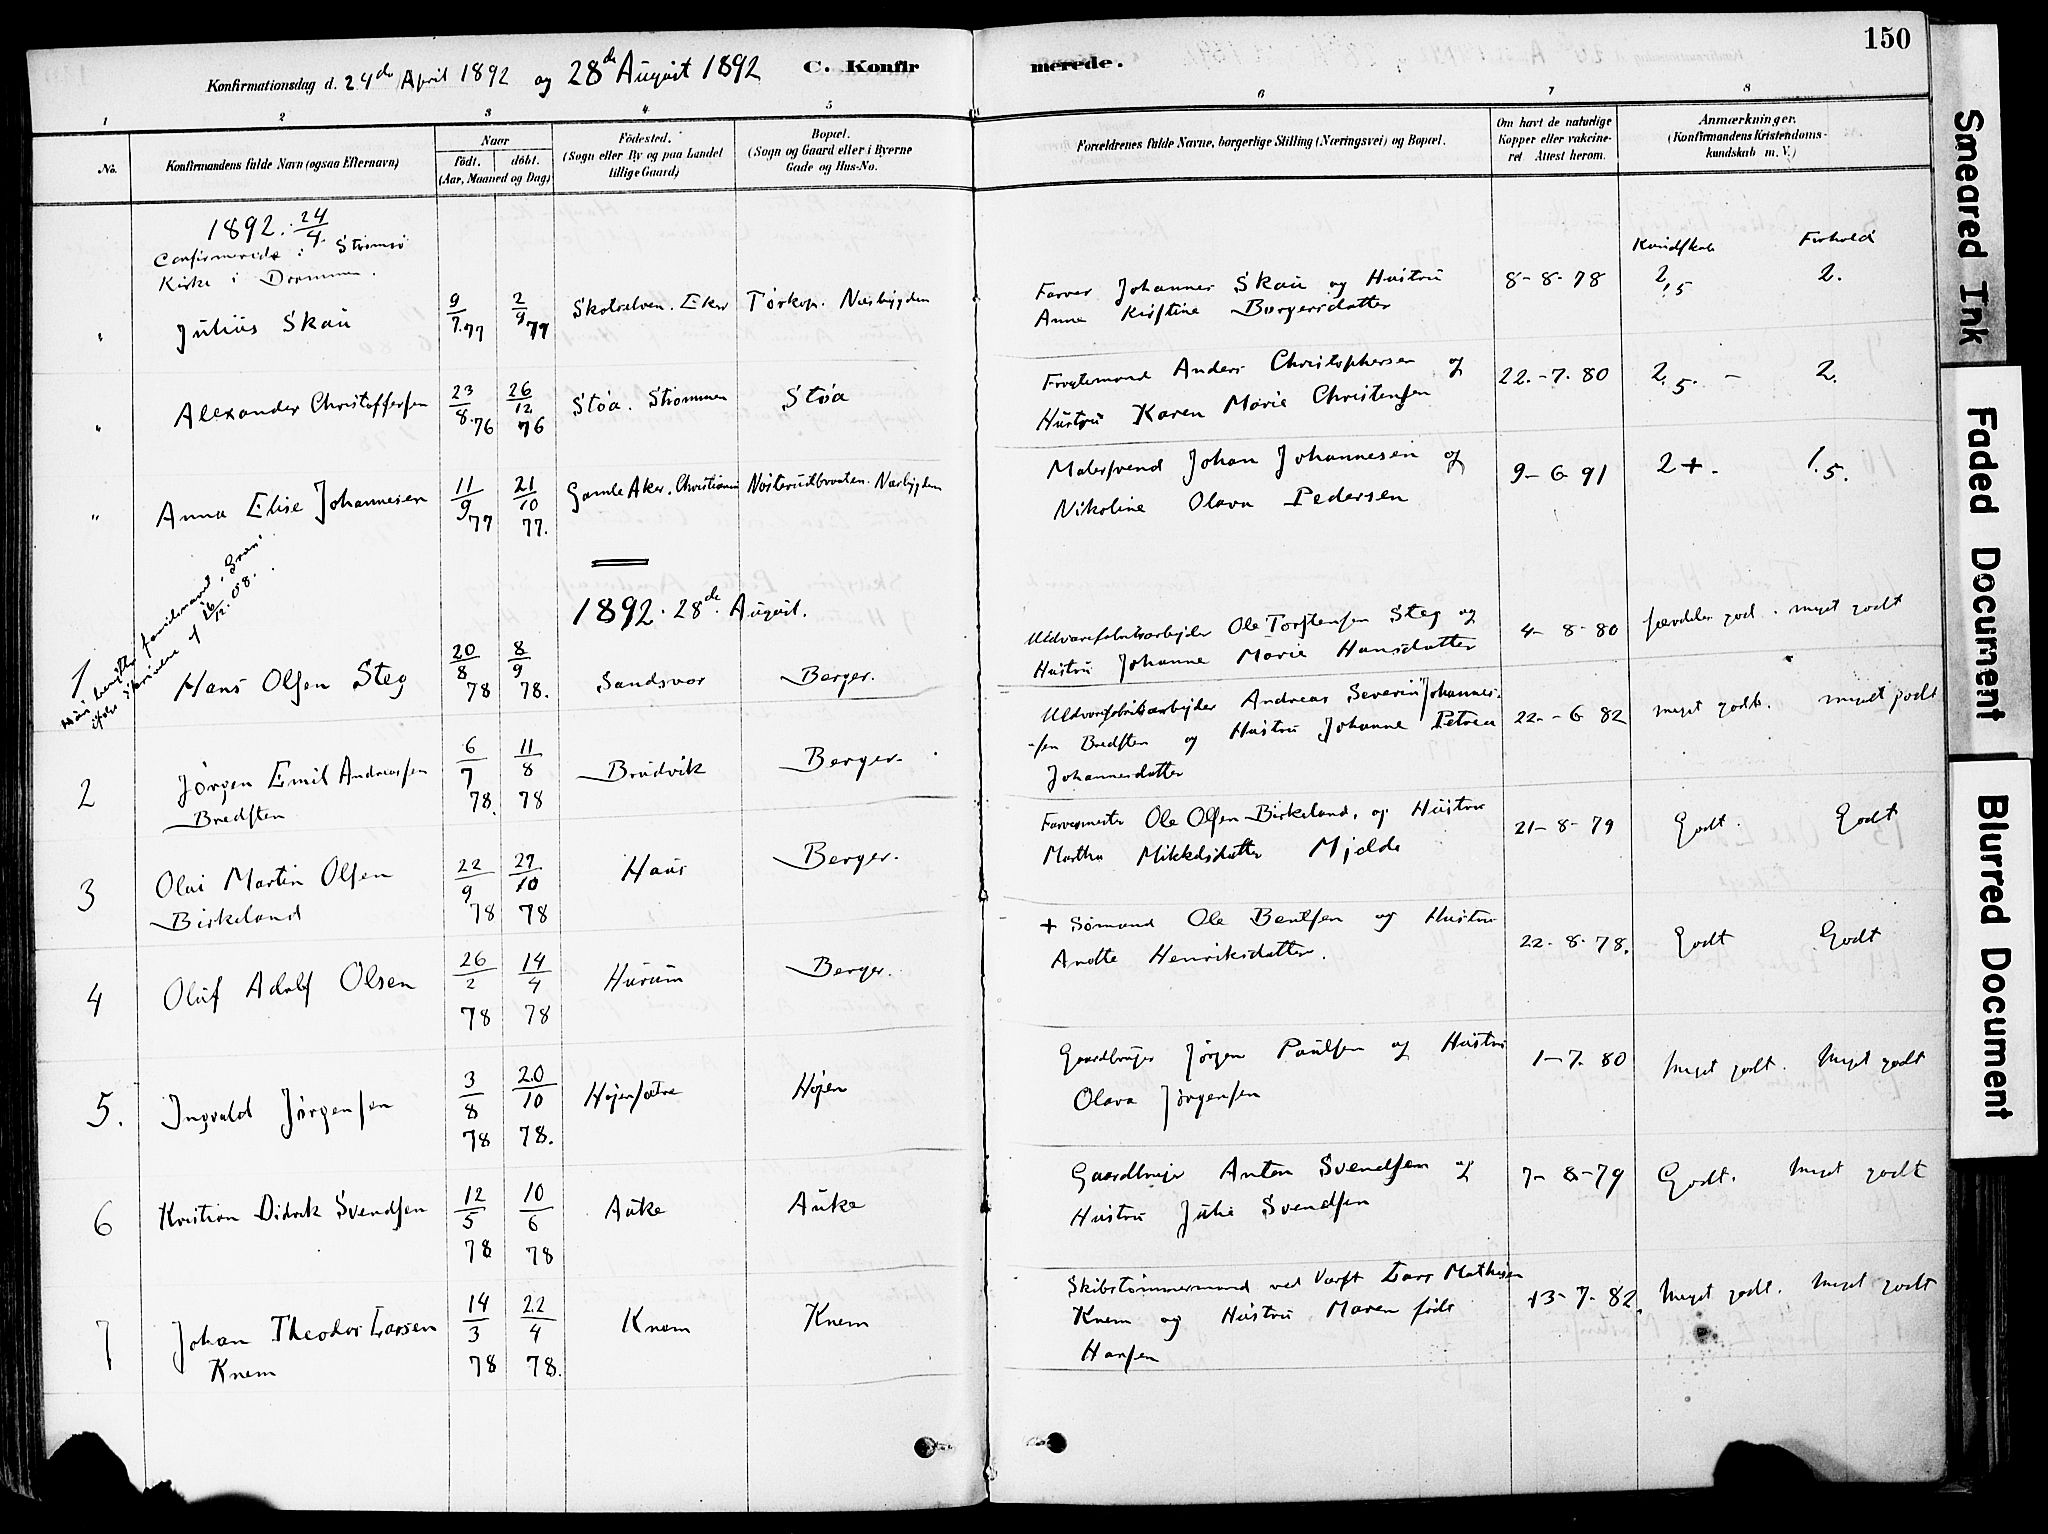 150
Konfirmationsdag d. 24de April 1892 og 28de August 1892 C. Konfirmerede.
1 2 3 4 5 6 7 8
No.
Konfirmandens fulde Navn (ogsaa Efternavn)
Naar
født. døbt.
(Aar, Maaned og Dag)
Fødested.
(Sogn eller By og paa Landet
tillige Gaard)
Bopæl.
(Sogn og Gaard eller i Byerne
Gade og Hus-No.
Forældrenes fulde Navne, borgerlige Stilling (Næringsvei) og Bopæl.
Om havt de naturlige
Kopper eller vakcine-
ret Attest herom.
Anmærkninger.
(Konfirmandens Kristendoms-
kundskab m. V.)
1892. 24/4
Confirmerede i Strømsø
Kirke i Drammen.
Kundskab Forhold
" Julius Skau 9/7.77 2/9 77 Skotselven. Eker Tørkop. Næsbygden
Farver Johannes Skau og Hustru
Anna Kristine Borgersdatter
8-8-78 2,5 2.
" Alexander Christoffersen 23/8.76 26/12 76 Støa. Strømmen Støa
Anders Christophersen og
Hustru Karen Marie Christensen
22.-7.80 2.5. - 2.
" Anna Elise Johannesen 11/9 77 21/10 77. Gamle Aker. Christiania Nøsterudbraaten. Næsbygden
Malersvend Johan Johannesen og
Nikoline Olava Pedersen
9-6-91 2+. 1.5.
1892. 28de August.
26/12.08.
1 Hans Olsen Steg 20/8 78 8/9 78. Sandsvær Berger.
Uldvarefabrikarbejder Ole Torstensen Steg og
Hustru Johanne Marie Hansdatter
4-8-80 særdeles godt. meget godt
2 Jørgen Emil Andreassen
Bredsten 6/7 78. 11/8 78 Brudvik Berger.
Uldvarefabrikarbejder Andreas Severin Johannes-
sen Bredsten og Hustru Johanne Petrea
Johannesdatter
22.-6 82 meget godt. meget godt
3 Olai Martin Olsen
Birkeland 22/9 78 27/10 78 Haus Berger.
Farvermester Ole Olsen Birkeland, og Hustru
Martha Mikkelsdatter Mjelde
21-8-79 Godt. Godt
4 Oluf Adolf Olsen 26/2 78 14/4 78 Hurum Berger.
+ Sømand Ole Bentsen og Hustru
Anotte Henriksdatter.
22-8-78. Godt Godt
5. Ingvald Jørgensen 3/8 78 20/10 78. Højensætre Højen
Gaardbruger Jørgen Paulsen og Hustru
Olava Jørgensen
1-7.80 Meget godt. Meget godt
6 Kristian Didrik Svendsen 12/5 78 10/6 78 Auke Auke
Gaardbruger Anton Svendsen og
Hustru Julie Svendsen
7-8-79 Godt. Meget godt
7 Johan Theodor Larsen
Knem 14/3 78 22/4 78. Knem Knem
Skibstømmermand ved Værft Lars Mathisen
Knem og Hustru Maren født
Hansen
13-7-82. Meget godt. Meget godt
Smeared Ink
Faded Document
Blurred Document